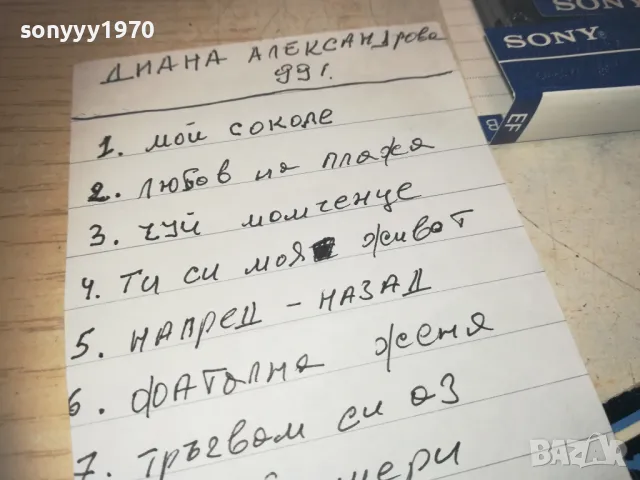 sonyyy1970
ДИАНА АЛЕКСАНДРОВА
99г.
SONY
SONY
EF
1. МОЙ СОКОЛЕ
2. ЛЮБОВ НА ПЛАЖА
3. ЧУЙ МОМЧЕНЦЕ
4. ТИ СИ МОЯ ЖИВОТ
5. НАПРЕД - НАЗАД
6. ФАТАЛНА ЖЕНА
7. ТРЪГВАМ СИ АЗ
BAZAR